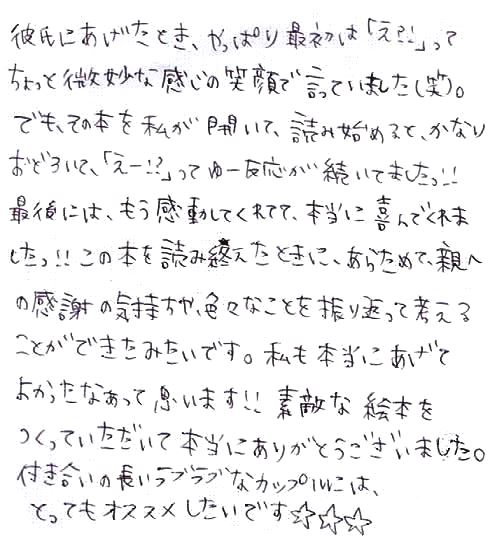 彼氏にあげたとき、やっぱり最初は「え?!」って
ちょっと微妙な感じの笑顔で言っていました(笑)。
でも、その本を私が開いて、読み始めると、かなり
おどろいて、「えー!?」ってゆー反応が続いてましたっ!!
最後には、もう感動してくれてて、本当に喜んでくれま
したっ!!この本を読み終えたときに、あらためて、親へ
の感謝の気持ちや、色々なことを振り返って考える
ことができたみたいです。私も本当にあげて
よかったなあって思います!!素敵な絵本を
つくっていただいて本当にありがとうございました。
付き合いの長いラブラブなカップルには、
とってもオススメしたいです☆☆☆